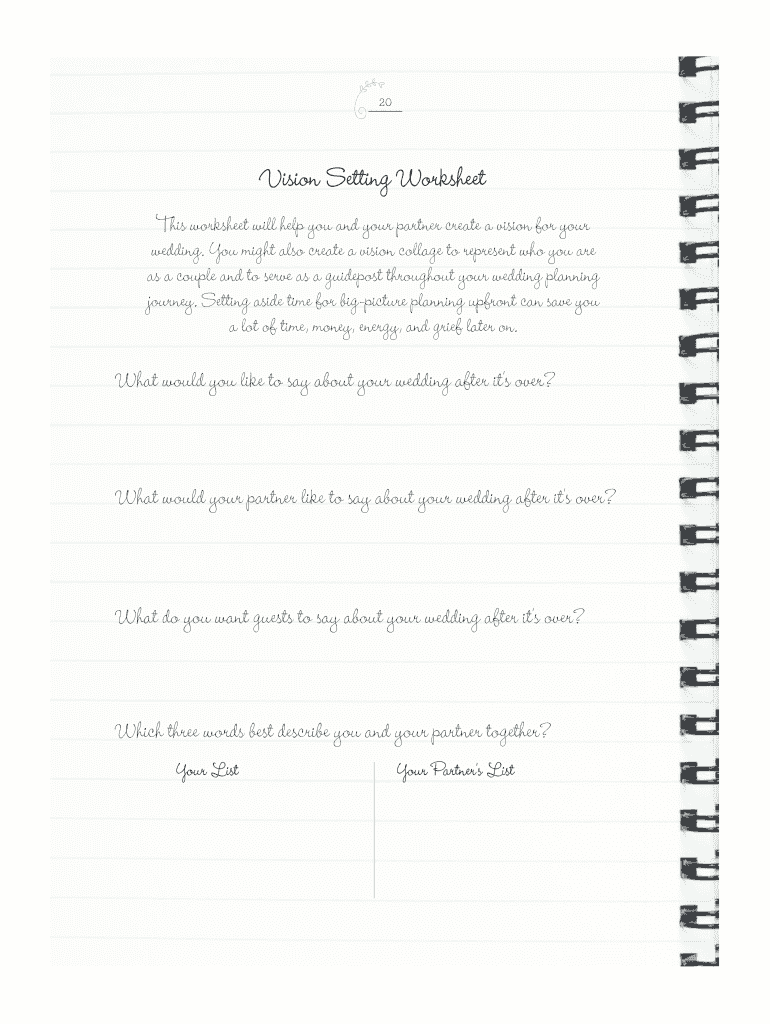 20
Vision Setting Worksheet
This worksheet will help you and your partner create a vision for your
wedding. You might also create a vision collage to represent who you are
as a couple and to serve as a guidepost throughout your wedding planning
journey. Setting aside time for big-picture planning upfront can save you
a lot of time, money, energy, and grief later on.
What would you like to say about your wedding after it's over?
What would your partner like to say about your wedding after it's over?
What do you want guests to say about your wedding after it's over?
Which three words best describe you and your partner together?
Your List
Your Partner's List